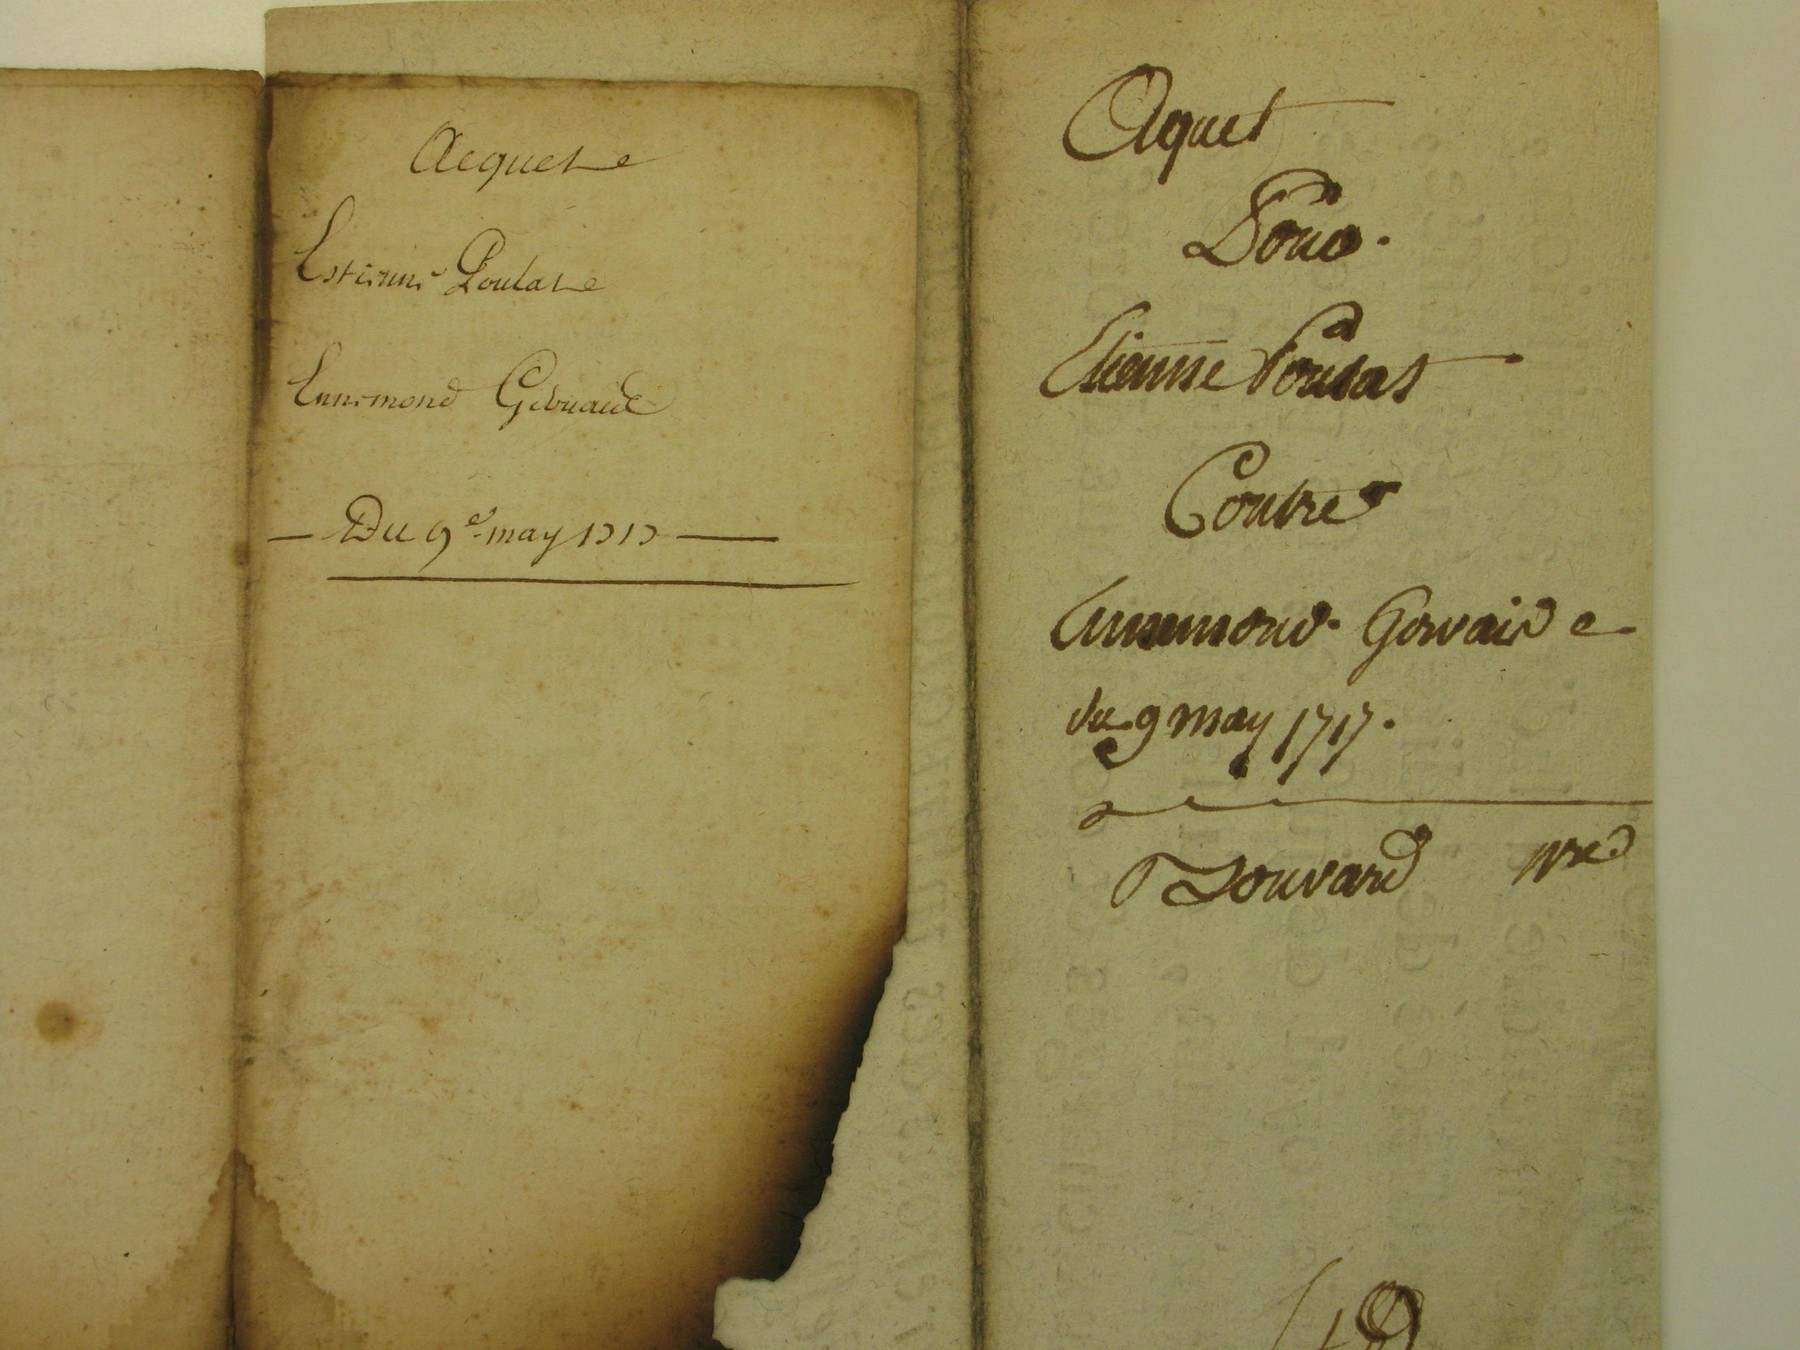 Acquet
Estienne Poulat
Ennemond Gervaid
Du 9e may 1717
Aquet
Pour
Etienne Poulat
Contre
Ennemond Gervaid
du 9 may 1717.
Bouvard nre